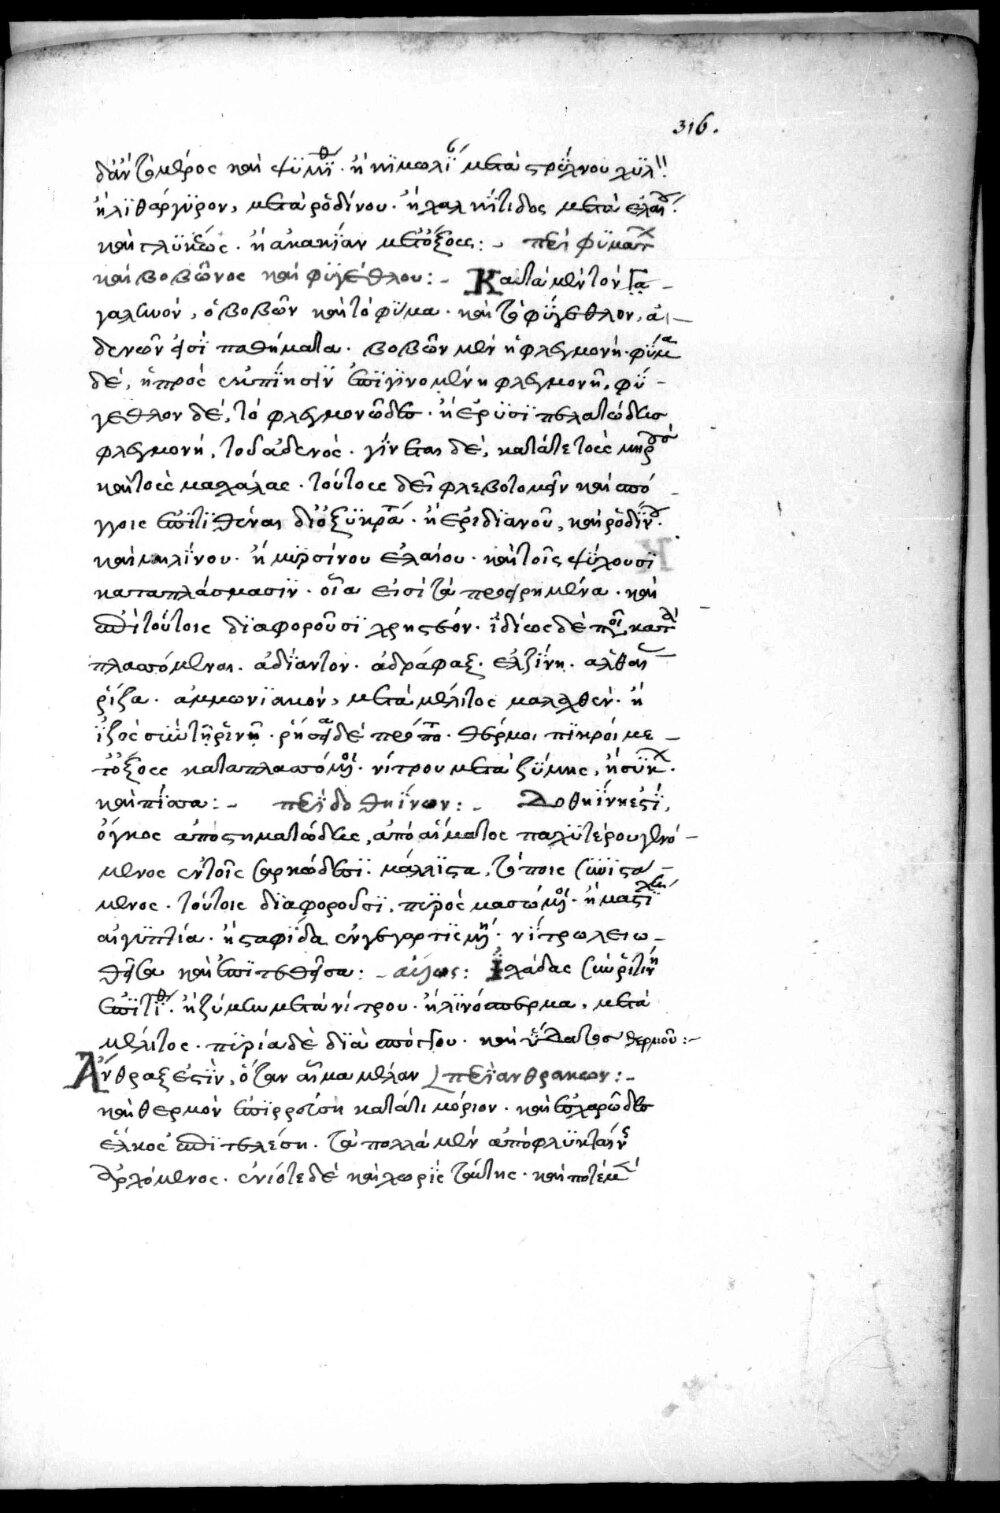 316.
δὰν τὸ μέρος καὶ ψϊμϊθ · ἢ κϊμωλΐ μετὰ στρύχνου χϋλ
ἢ λϊθάργϋρον, μετὰ ῥοδίνου · ἢ χαλκίτιδος μετὰ ἐλαί
καὶ γλϋκέως · ἢ ἀκακΐαν μετ' ὄξους :- περὶ φϋμάτ
καὶ βοβῶνος καὶ φϋγέθλου :- Κατὰ μὲν τὸν γα
γαληνόν, ὁ βοβὼν καὶ τὸ φῦμα · καὶ τὸ φύγεθλον, ἀ
δένων εἰσὶ παθήματα · βοβὼν μὲν ἡ φλεγμονή · φῦμα
δέ, ἡ πρὸς ἐκπΐησϊν ἐπϊγϊνομένη φλεγμονῆ, φϋ
γεθλον δέ, τὸ φλεγμονῶδες · ἢ ἐρϋσϊπελατώδης
φλεγμονή, τοῦ ἀδενός · γΐνεται δέ, κατά τε τοὺς μηρ
καὶ τοὺς μαχάλας · τούτους δεῖ φλεβοτομεῖν καὶ σπό
γγοις ἐπϊτϊθέναι δϊ' ὀξϋκρά · ἢ ἐριδϊανοῦ, καὶ ῥοδΐν
καὶ μηλΐνου · ἢ μϋρσίνου ἐλαίου · καὶ τοῖς ψύχουσϊ
καταπλάσμασϊν · οἷα εἰσὶ τὰ προειρημένα · καὶ
ἐπὶ τούτοις δϊαφοροῦσϊ χρηστέον · ἰδίως δὲ ποι κατ
πλασσόμεναι · ἀδΐαντον · ἀδράφαξ · ἑλξΐνη · ἀλθαί
ῥίζα · ἀμμωνϊακόν, μετὰ μέλιτος μαλαχθέν · ἢ
ϊξὸς σὺν τῇ ῥϊνῃ · ῥήσσει δὲ πρῶτο · θέρμοι πϊκροὶ με
τ' ὄξους καταπλασσόμ · νίτρου μετὰ ζύμης, ἢ σύκ
καὶ πίσσα :- περὶ δοθϊήνων :- Δοθϊήν ἐστϊ,
ὄγκος ἀποστηματώδης, ἀπὸ αἵματος παχϋτέρου γενό
μενος ἐν τοῖς σαρκώδεσϊ · μάλλϊστα, τόποις συνϊστα
μενος · τούτοις δϊαφοροῦσϊ, πϋρὸς μασσώμ · ἢ μαστΐχ
αἰγϋπτία · ἢ σταφΐδα ἐγγεγαρτϊσμ · νίτρω λειω
θεῖσα καὶ ἐπϊτεθεῖσα :- ἄλλως : ἰσχάδας σὺν ῥϊτίνη
ἐπϊτϊθ · ἢ ζύμην μετὰ νίτρου · ἢ λϊνόσπερμα, μετὰ
μέλιτος · πϋρία δὲ δϊὰ σπόγγου · καὶ ὕδατος θερμοῦ :-
Ἄνθραξ ἐστϊν, ὅταν αἷμα μέλαν περὶ ἀνθράκων :-
καὶ θερμὸν ἐπϊρρεύση κατά τι μόριον · καὶ ἐσχαρῶδες
ἕλκος ἐπϊτελέση · τὰ πολλὰ μὲν ἀπὸ φλϋκταίν
ἀρχόμενος · ἐνίοτε δὲ καὶ χωρὶς ταύτης · καὶ ποτὲ μ